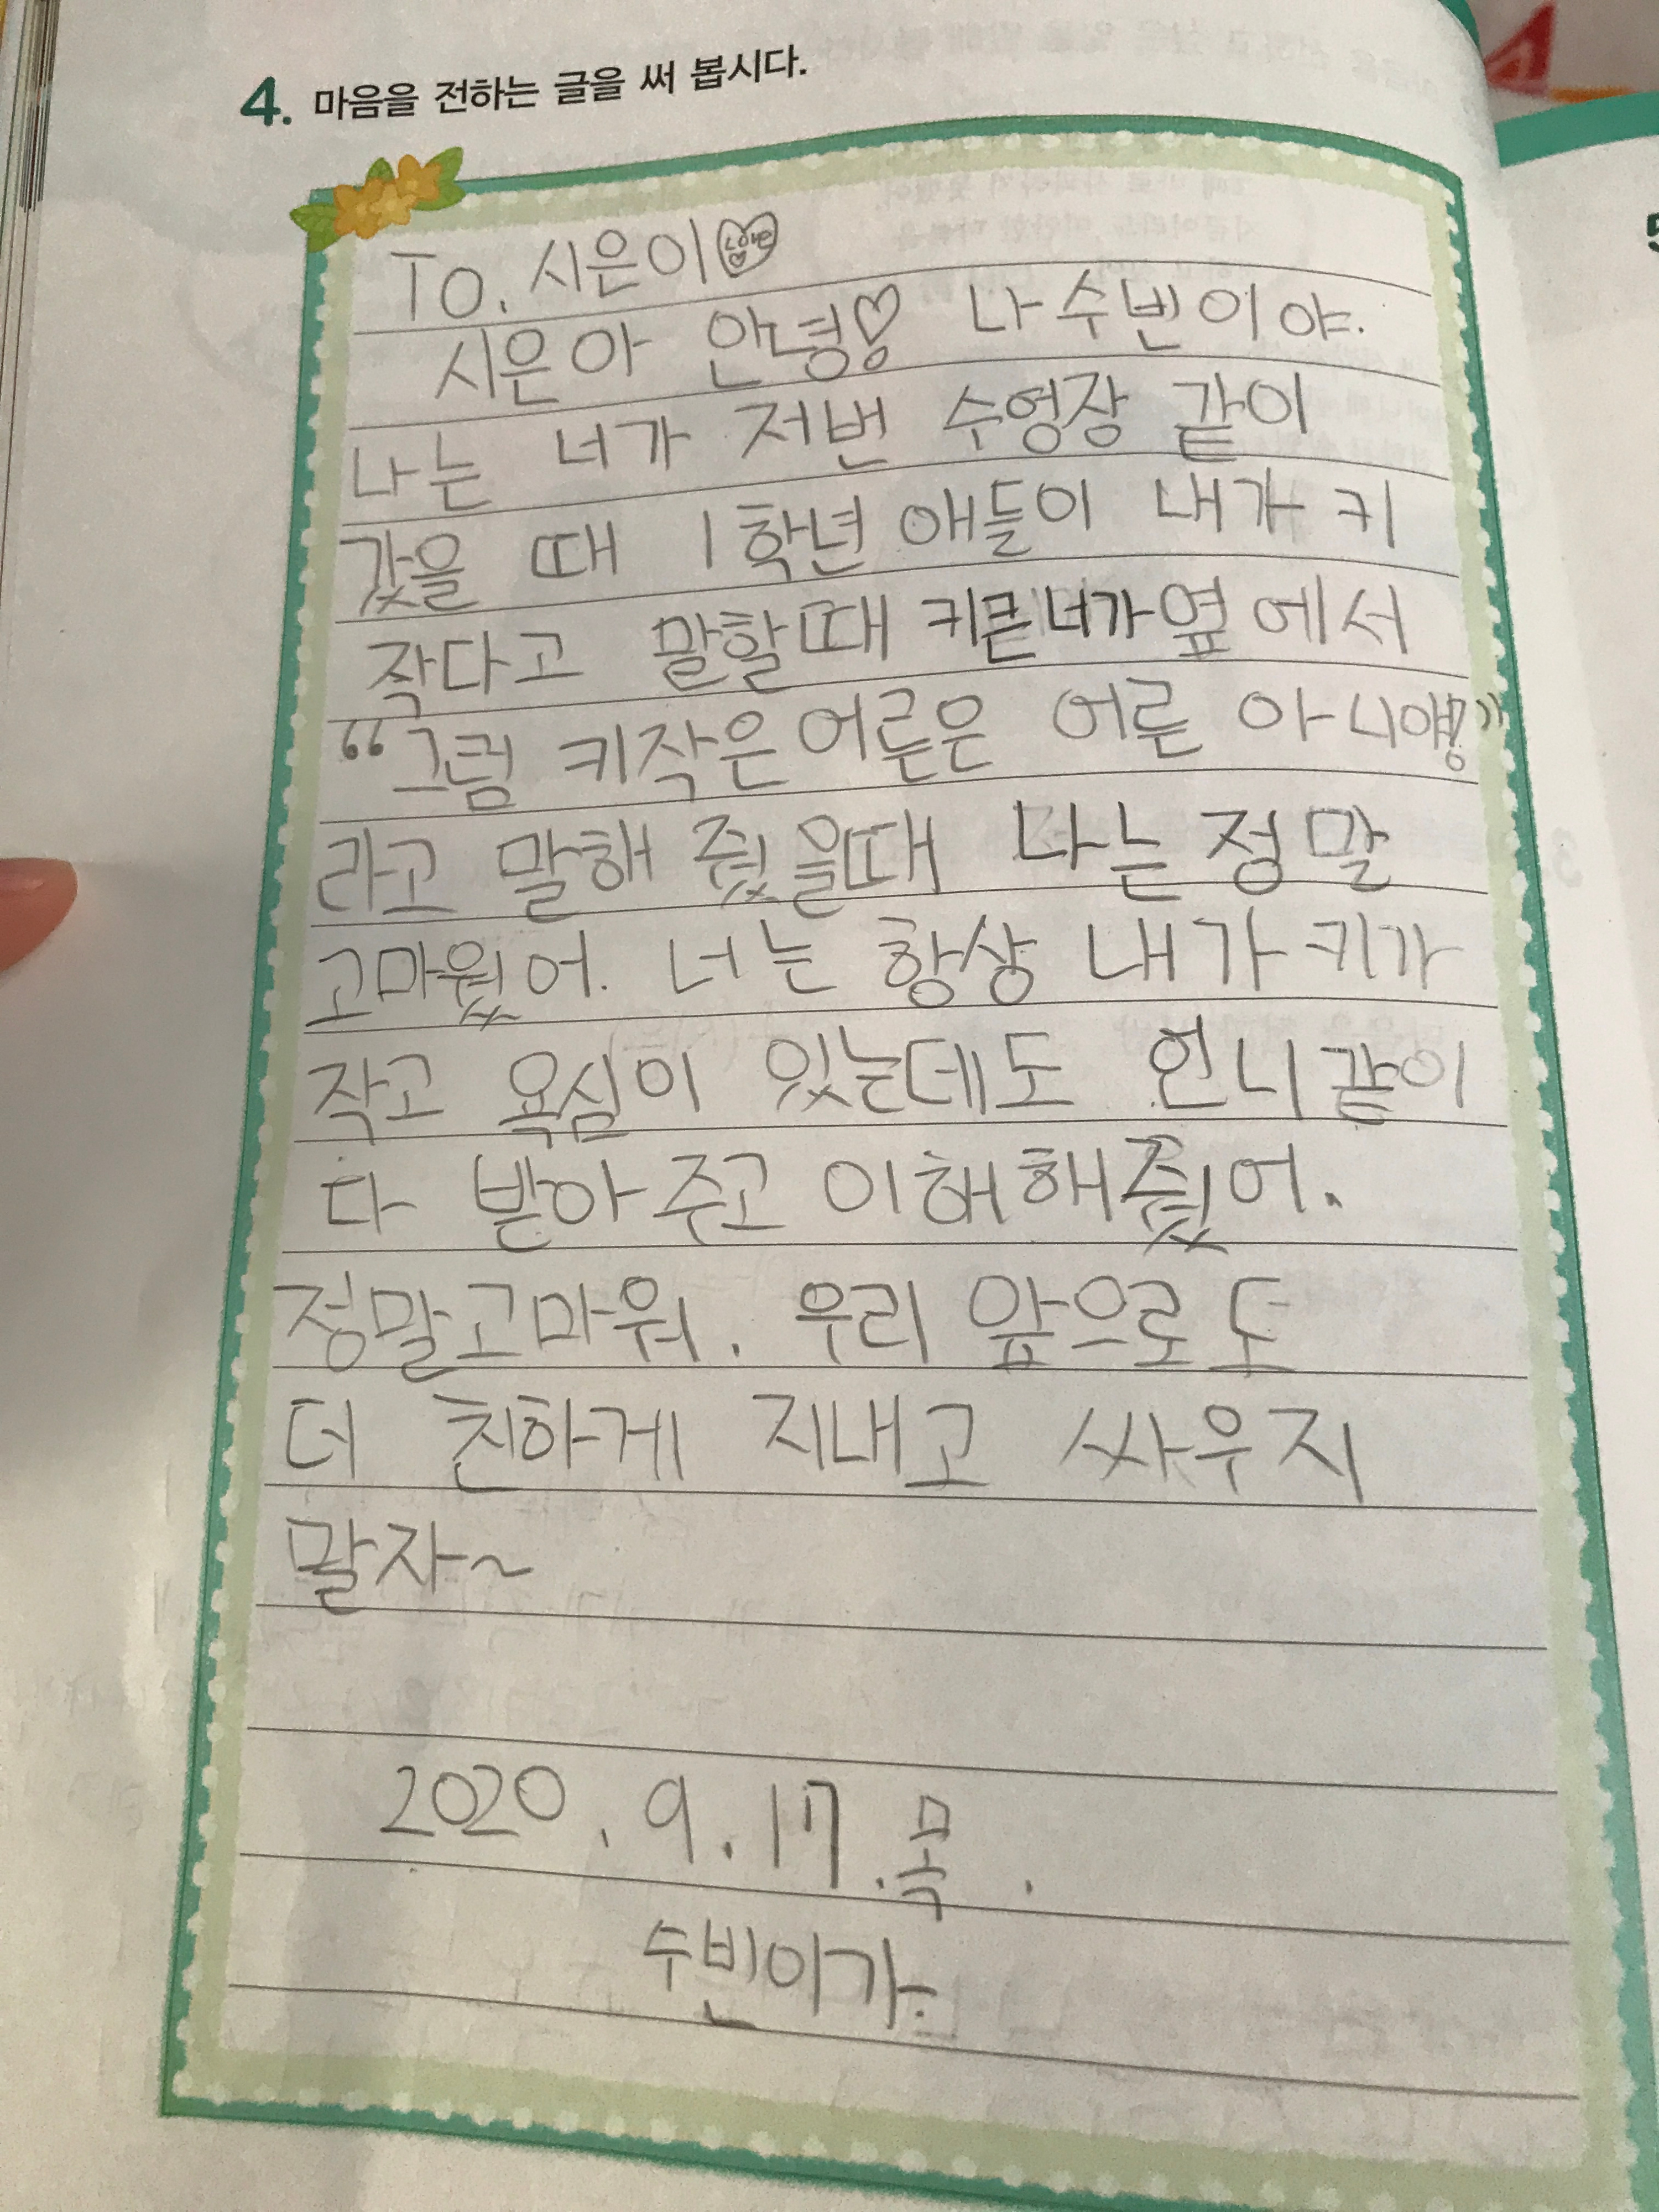 4. 마음을 전하는 글을 써 봅시다.
To. 시은이 Love
시은아 안녕♡ 나 수빈이야.
나는 너가 저번 수영장 같이
갔을 때 1학년 애들이 내가 키
작다고 말할때 키큰너가옆에서
“그럼 키작은어른은 어른 아니야?!”
라고 말해 줬을때 나는 정말
고마웠어. 너는 항상 내가 키가
작고 욕심이 있는데도 언니같이
다 받아주고 이해해줬어.
정말고마워. 우리 앞으로도
더 친하게 지내고 싸우지
말자~
2020. 9. 17. 목.
수빈이가.